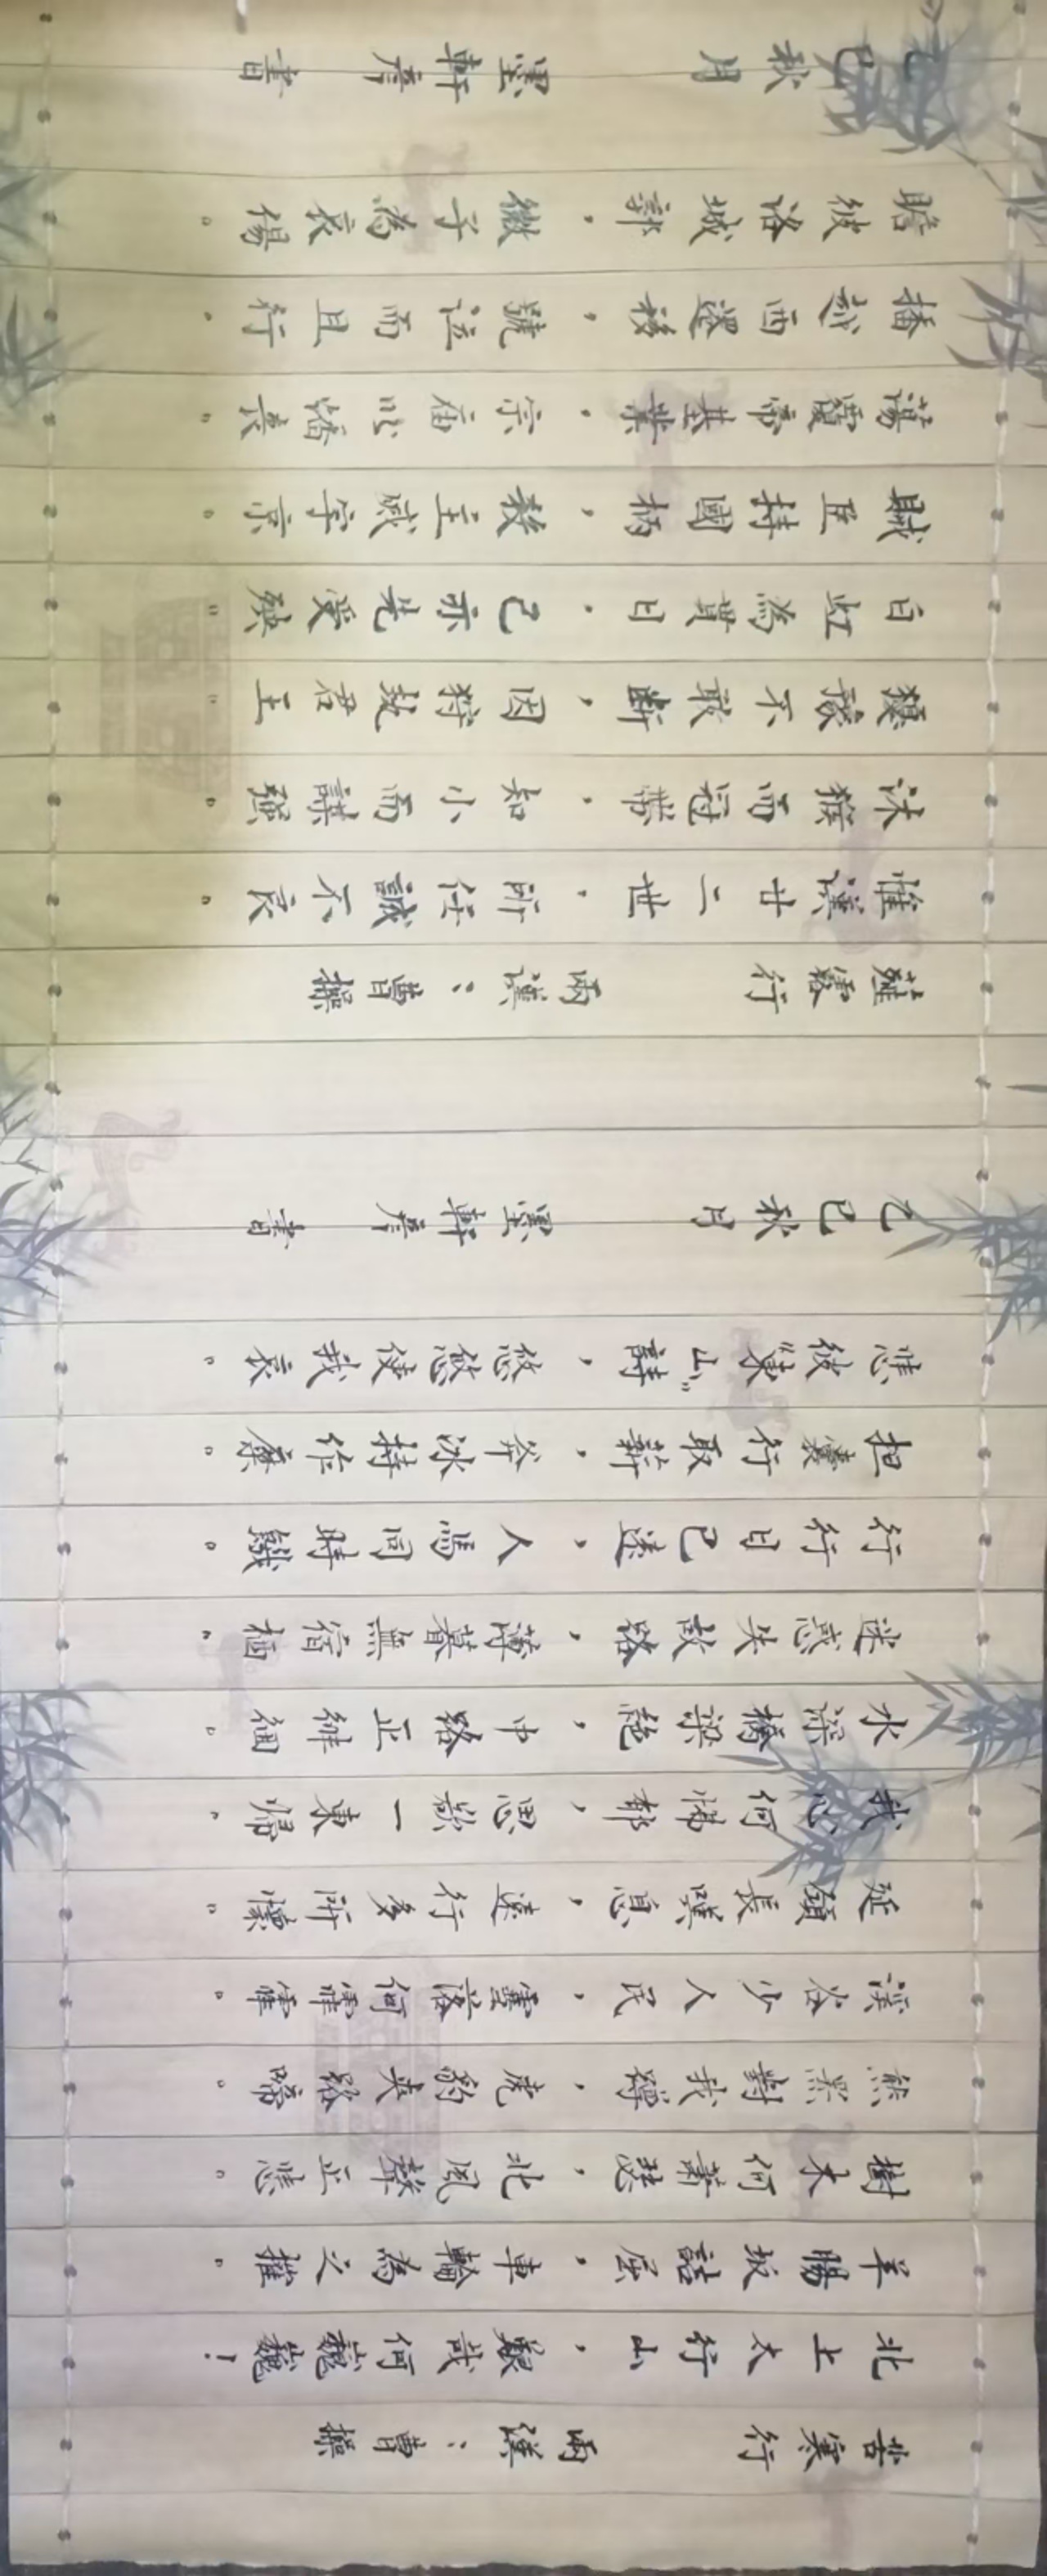 苦寒行 兩漢：曹操
北上太行山，艱哉何巍巍！
羊腸坂詰屈，車輪為之摧。
樹木何蕭瑟，北風聲正悲。
熊羆對我蹲，虎豹夾路啼。
溪谷少人民，雪落何霏霏。
延頸長嘆息，遠行多所懷。
我心何怫郁，思欲一東歸。
水深橋梁絕，中路正徘徊。
迷惑失故路，薄暮無宿栖。
行行日已遠，人馬同時饑。
担囊行取薪，斧冰持作糜。
悲彼“東山”詩，悠悠使我哀。
乙巳秋月 墨軒彦書
薤露行 兩漢：曹操
惟漢廿二世，所任誠不良。
沐猴而冠帶，知小而謀強。
猶豫不敢斷，因狩執君王。
白虹為貫日，己亦先受殃。
賊臣持國柄，殺主滅宇京。
蕩覆帝基業，宗庙以燔喪。
播越西遷移，號泣而且行。
瞻彼洛城郭，微子為哀傷。
乙巳秋月 墨軒彦書